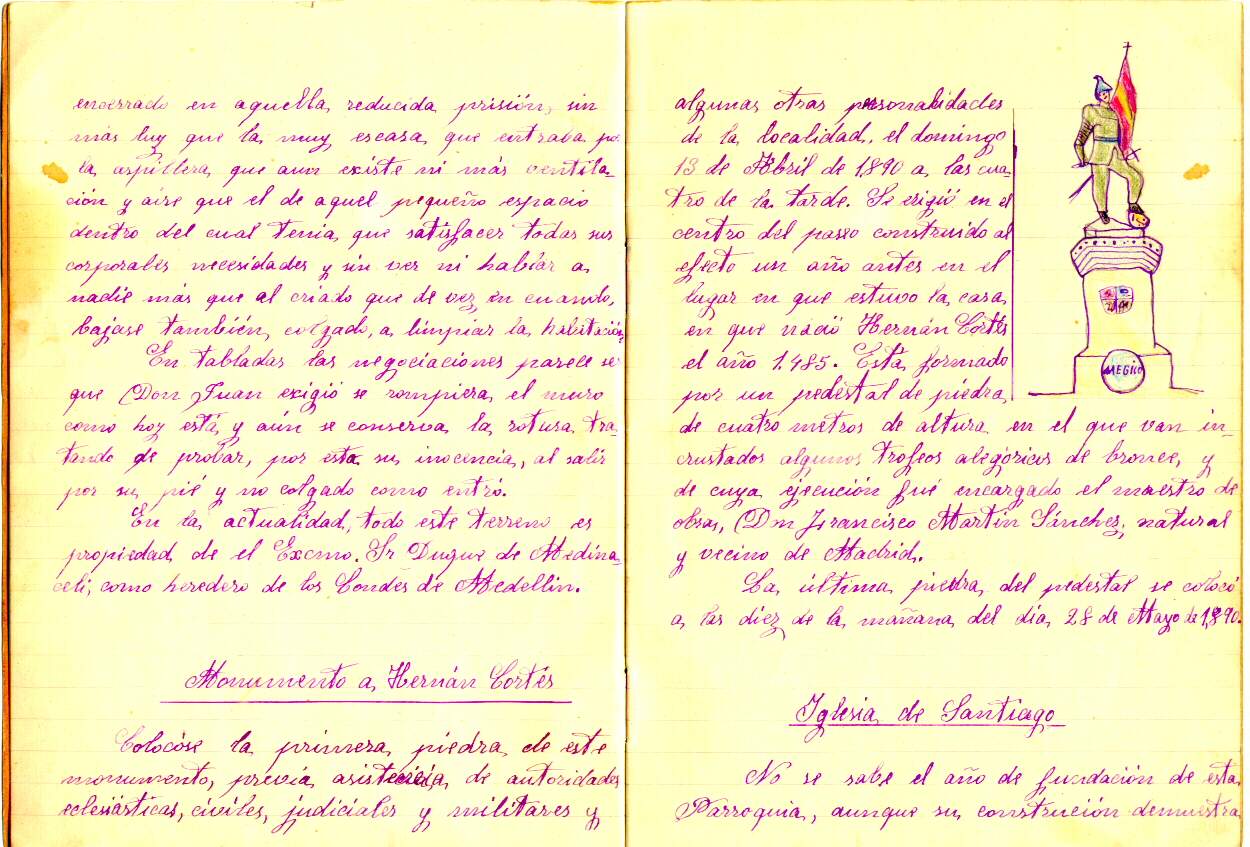 encerrado en aquella reducida prisión, sin
más luz que la muy escasa que entraba po
la aspillera que aun existe ni más ventila-
ción y aire que el de aquel pequeño espacio
dentro del cual tenia que satisfacer todas sus
corporales necesidades y sin ver ni hablar a
nadie más que al criado que de vez en cuando,
bajase también, colgado, a limpiar la habitación.
En tabladas las negociaciones parece se
que Don Juan exigió se rompiera el muro
como hoy está y aún se conserva la rotura tra-
tando de probar, por esta su inocencia, al salir
por su pié y no colgado como entró.
En la actualidad, todo este terreno es
propiedad de el Excmo. Sr Duque de Medina
celi, como heredero de los Condes de Medellin.
Monumento a Hernán Cortés
Colocóse la primera piedra de este
monumento, previa asistencia de autoridades
eclesiásticas, civiles, judiciales y militares y
algunas otras personalidades
de la localidad, el domingo
13 de Abril de 1890 a las cua-
tro de la tarde. Se erigió en el
centro del paseo construido al
efecto un año antes en el
lugar en que estuvo la casa
en que nació Hernán Cortés
el año 1.485. Está formado
por un pedestal de piédra
de cuatro metros de altura en el que van in-
crustados algunos trofeos alegóricos de bronce, y
de cuya ejecución fué encargado el maestro de
obras, Don Francisco Martín Sánchez, natural
y vecino de Madrid.
La última piedra del pedestal se colocó
a las diez de la mañana del día 28 de Mayo de 1,890.
MEGICO
Iglesia de Santiago
No se sabe el año de fundación de esta
Parroquia, aunque su construción demuestra